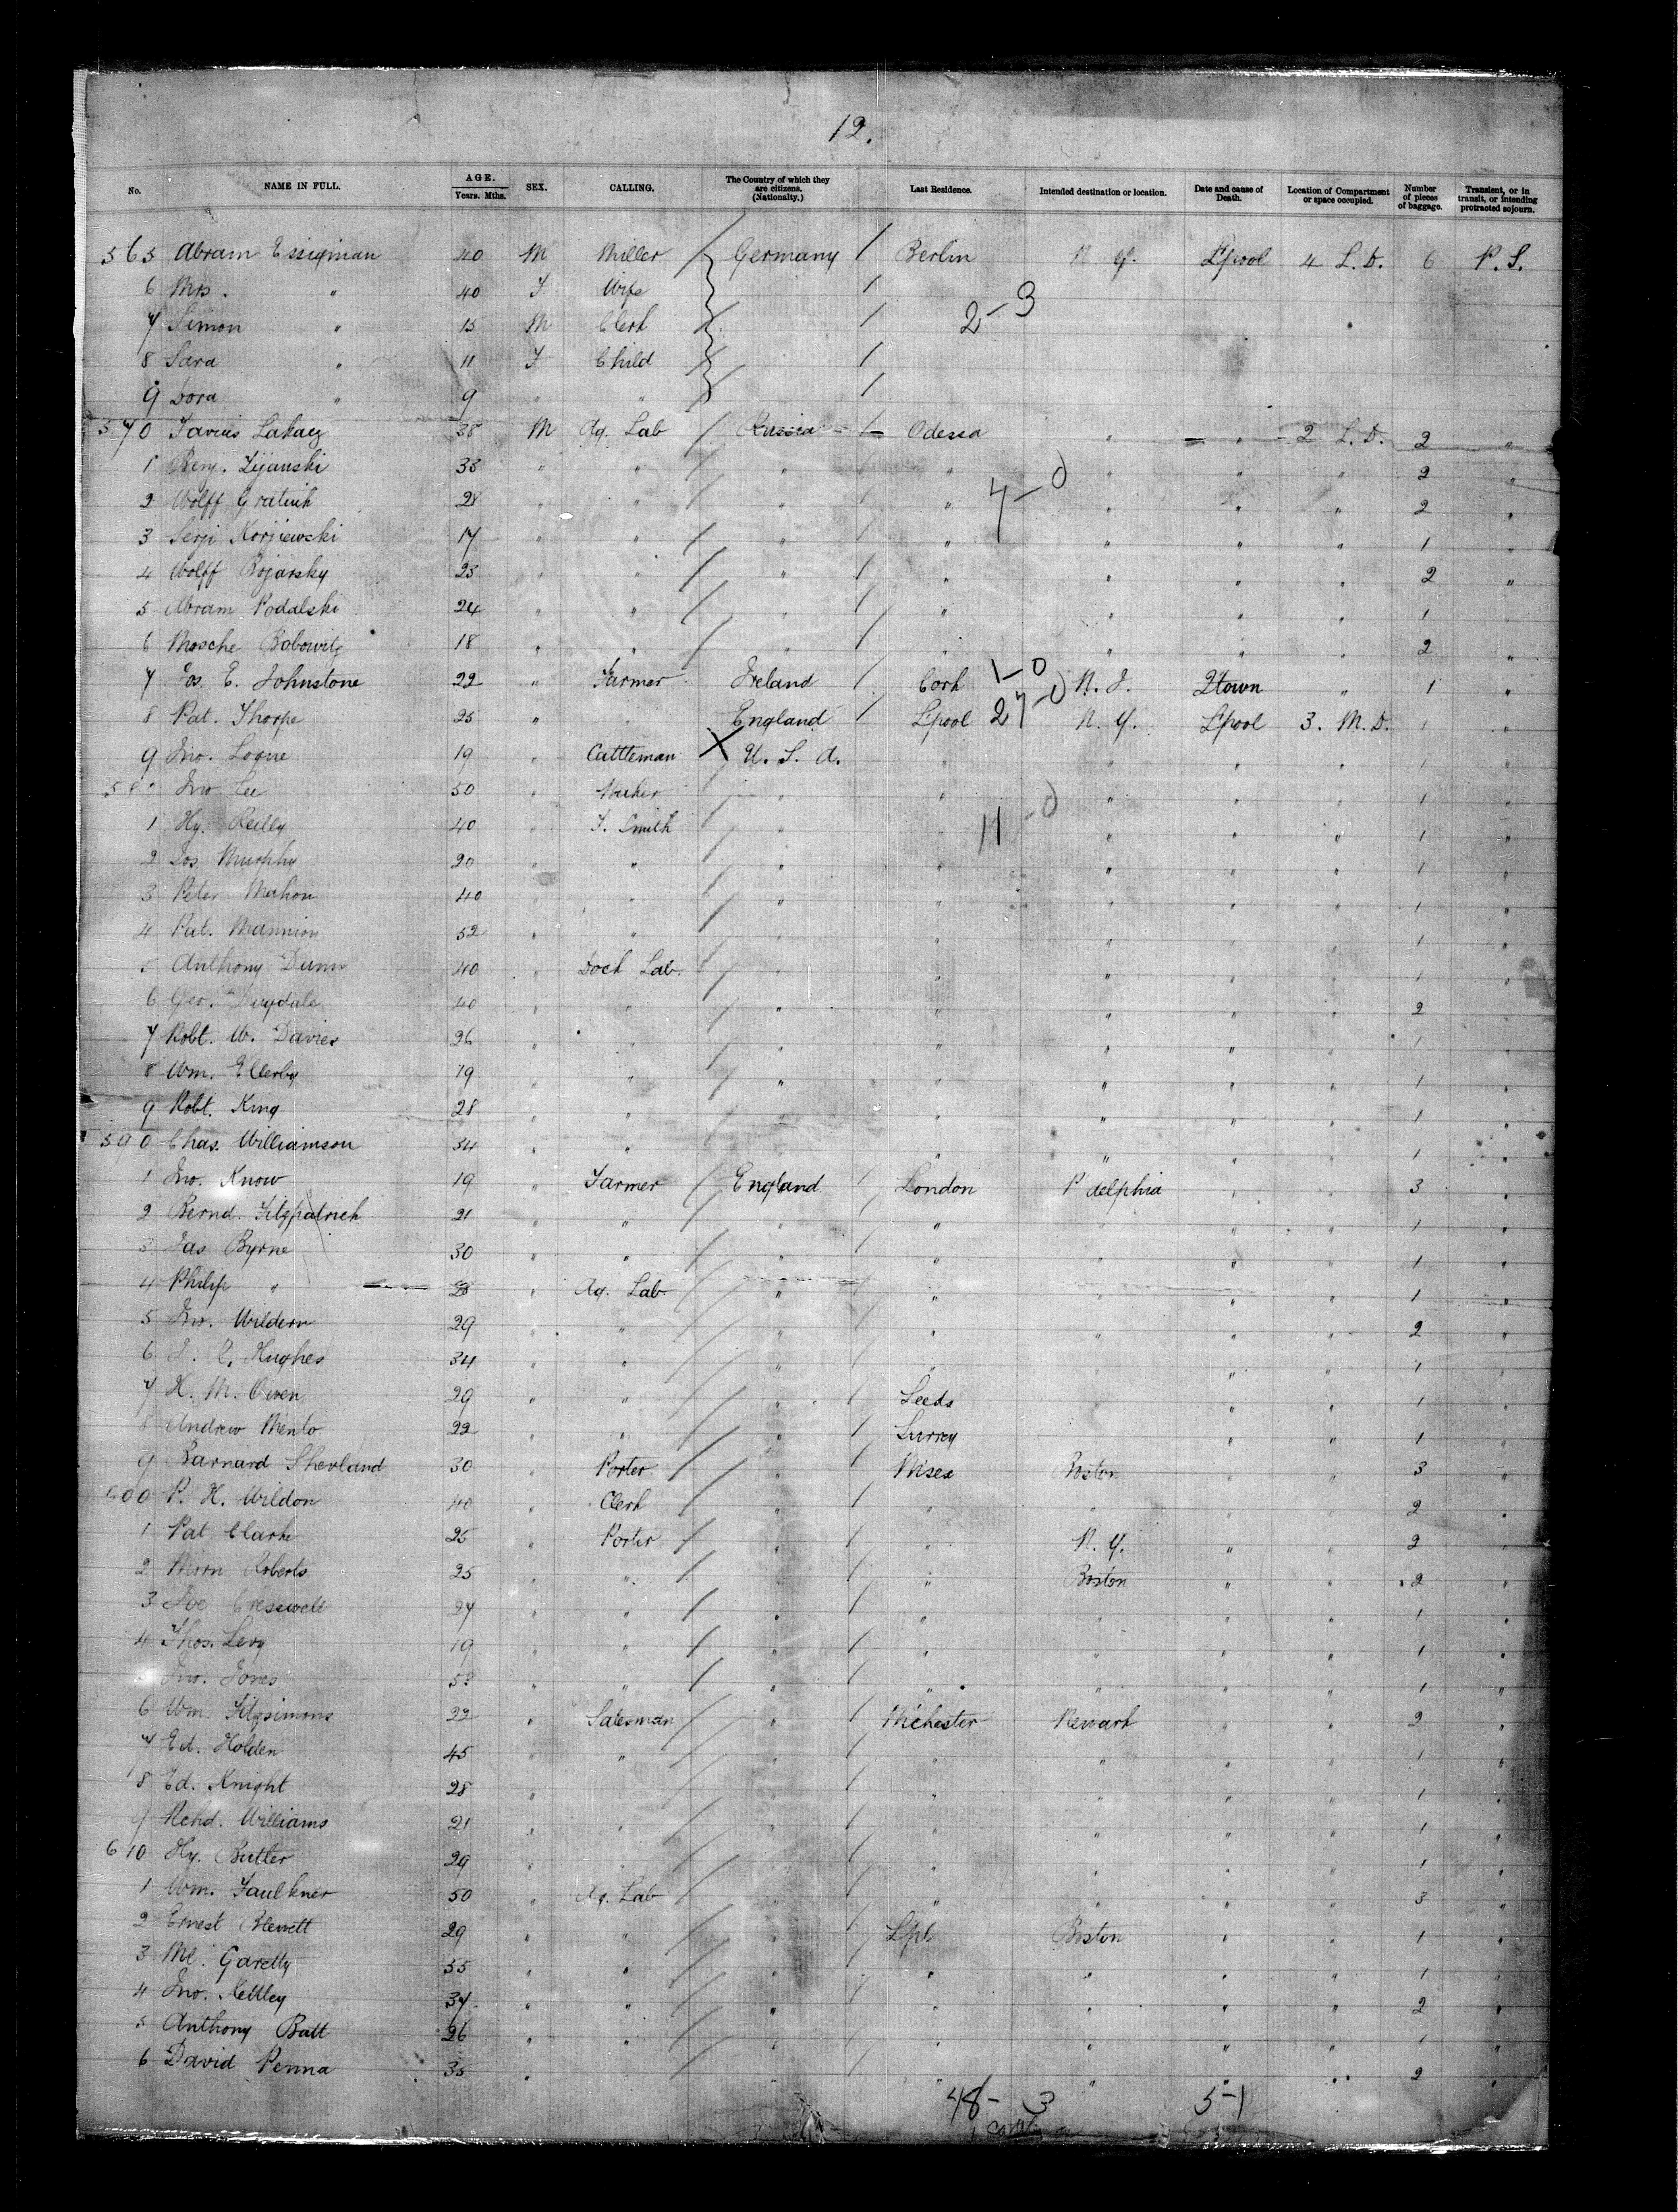 12.
No. NAME IN FULL. AGE. Years. Mths. SEX. CALLING. The Country of which they are citizens. (Nationality.) Last Residence. Intended destination or location. Date and cause of Death. Location of Compartment or space occupied. Number of pieces of baggage. Transient, or in transit, or intending protracted sojourn.
565 Abram Essigman 40 M Miller Germany Berlin N. Y. L'pool 4 L. D. 6 P. S.
6 Mrs. " 40 F Wife
7 Simon " 15 M Clerk 2-3
8 Sara " 11 F Child
9 Dora " 9 " "
570 Lakacz 38 M Ag. Lab Russia Odessa " " 2 L. D. 2 "
1 Benj. 33 " " " " " " " 2 "
2 Wolff 28 " " " " 4-0 " " " 2 "
3 Serji Korjiewski 17 " " " " " " " 1 "
4 Wolff Bojarsky 23 " " " " " " " 2 "
5 Abram Podalski 24 " " " " " " " 1 "
6 Mosche Bobowitz 18 " " " " " " " 2 "
7 Jos. E. Johnstone 22 " Farmer Ireland Cork 1-0 N. J. Qtown " 1 "
8 Pat. Thorpe 25 " " England L'pool 27-0 N. Y. L'pool 3. M. D. 1 "
9 Jno. Logue 19 " Cattleman X U. S. A. " " " " 1 "
580 Jno Lee 50 " " " " " " 1 "
1 Hy. Reilly 40 " F. Smith " " 11-0 " " " 1 "
2 Jos Murphy 20 " " " " " " " 1 "
3 Peter Mahon 40 " " " " " " " 1 "
4 Pat. Mannion 52 " " " " " " " 1 "
5 Anthony Dunn 40 " Dock Lab. " " " " " 1 "
6 Geo. Dugdale 40 " " " " " " " 2 "
7 Robt. W. Davies 26 " " " " " " " 1 "
8 Wm. Ellerby 19 " " " " " " " 1 "
9 Robt. King 28 " " " " " " " 1 "
590 Chas. Williamson 34 " " " " " " " 1 "
1 Jno. Know 19 " Farmer England London P'delphia " " 3 "
2 Bernd. Fitzpatrick 21 " " " " " " " 1 "
3 Jas Byrne 30 " " " " " " " 1 "
4 Philip " " Ag. Lab " " " " " 1 "
5 Jno. Wildern 29 " " " " " " " 2 "
6 Hughes 34 " " " " " " " 1 "
7 H. M. Owen 29 " " " Leeds " " 1 "
8 Andrew Mento 22 " " " Surrey " " 1 "
9 Barnard Shevland 30 " Porter " M'sex Boston " " 3 "
600 P. H. Wildon 40 " Clerk " " " " " 2 "
1 Pat Clarke 25 " Porter " " N. Y. " " 2 "
2 Roberts 25 " " " " Boston " " 2 "
3 Joe Cresswell 27 " " " " " " " 1 "
4 Thos. Levy 19 " " " " " " " 1 "
5 Jno. Jones " " " " " " " 1 "
6 Wm. Fitzsimons 22 " Salesman " M'chester Newark " " 2 "
7 Ed. Holden 45 " " " " " " " 1 "
8 Ed. Knight 28 " " " " " " " 1 "
9 Rchd. Williams 21 " " " " " " " 1 "
610 Hy. Butler 29 " " " " " " " 1 "
1 Wm. Faulkner 50 " Ag. Lab " " " " " 3 "
2 Ernest Blewett 29 " " " Lpl Boston " " 1 "
3 Ml. Garetty 55 " " " " " " " 1 "
4 Jno. Kettley 37 " " " " " " " 2 "
5 Anthony Batt 26 " " " " " " " 1 "
6 David Penna 35 " " " " " " " 2 "
48-3 5-1